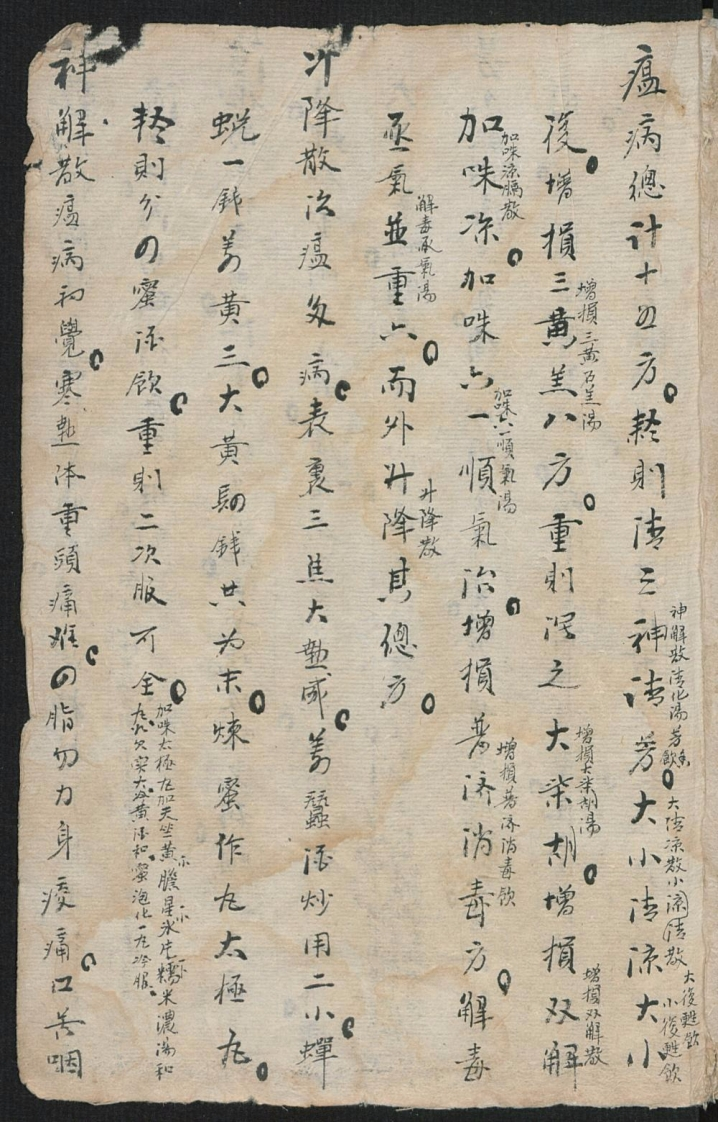 瘟病總計十四方輕則清之神清芳大小清凉大小
神解散清化湯芳香飲
大清凉散小清凉散
大復甦飲
小復甦飲
復增損三黄羔八方重則瀉之大柴胡增損双解
增損三黄石羔湯
增損大柴胡湯
增損双解散
加味凉加味六一順氣治增損普济消毒方解毒
加味凉膈散
加味六一順氣湯
增損普济消毒飲
承氣並重六而外升降其總方
解毒承氣湯
升降散
升降散治瘟多病表裏三焦大熱咸姜蠶酒炒用二小蟬
蜕一錢姜黄三大黄四錢共为末煉蜜作丸太極丸
輕則分四蜜酒飲重則二次服可全
加味太極丸加天竺黄膽星氷片糯米濃湯和
丸
大黄
和蜜泡化一丸冷服
神解散瘟病初覺寒熱体重頭痛难四脂勿力身痠痛口苦咽